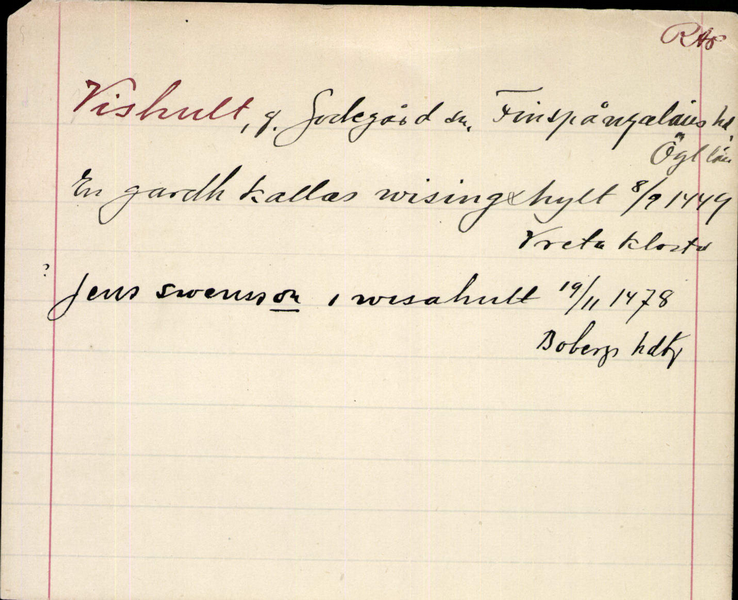 RAp
Vishult, g. Godegård sn, Finspångaläns hd,
Ögl län
En gardh kallas wisingxhylt 8/9 1449
Vreta kloster
? Jens swensson i wisahult 19/11 1478
Bobergs hdbr